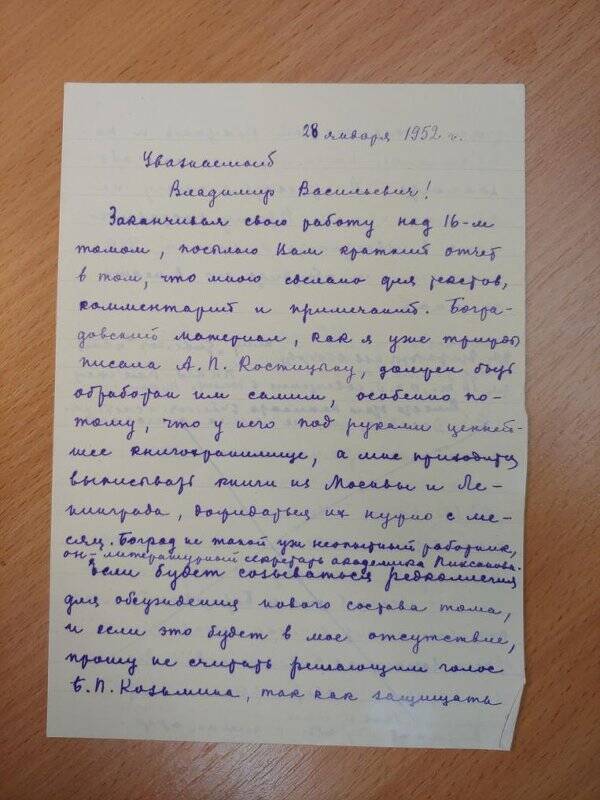 28 января 1952 г.
Уважаемый
Владимир Васильевич!
Заканчивая свою работу над 16-м
томом, посылаю Вам краткий отчет
в том, что мною сделано для текстов,
комментарий и примечаний. Богра-
довский материал, как я уже трижды
писала А. П. Костицыну, должен быть
обработан им самим, особенно по-
тому, что у него под руками ценней-
шее книгохранилище, а мне приходится
выписывать книги из Москвы и Ле-
нинграда, дожидаться их нужно с ме-
сяц. Боград не такой уж неопытный работник,
он - литературный секретарь академика Пиксанова.
Если будет созываться редколлегия
для обсуждения нового состава тома,
и если это будет в мое отсутствие,
прошу не считать решающим голос
Б. П. Козьмина, так как защищать